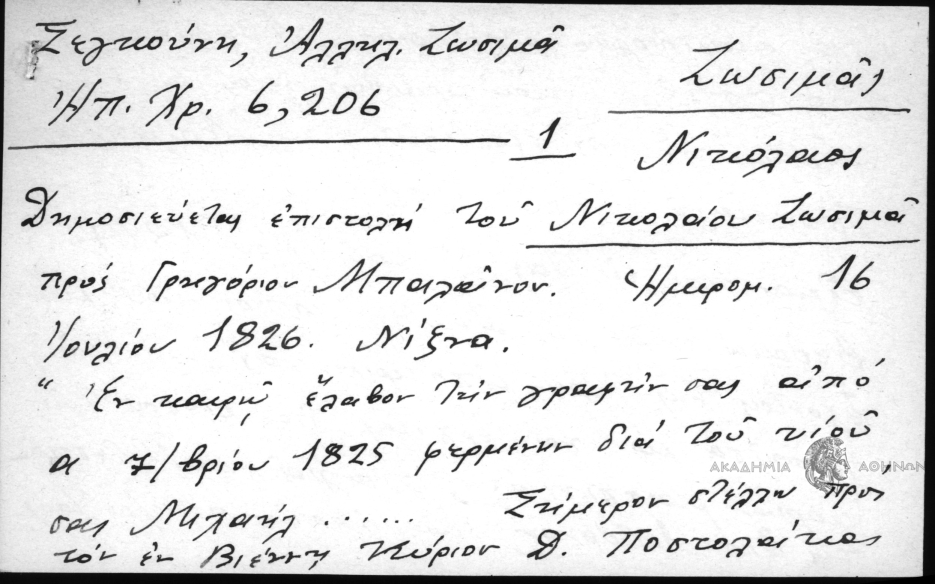 Σεγκούνη, Ἀλληλ. Ζωσιμᾶ
Ἠπ. Χρ. 6, 206
Ζωσιμᾶς
1
Νικόλαος
Δημοσιεύεται ἐπιστολή τοῦ Νικολαίου Ζωσιμᾶ
πρός Γρηγόριον Μπαλαῖνον. Ἡμερομ. 16
Ἰουλίου 1826. Νίξνα.
"Ἐν καιρῷ ἔλαβον τήν γραφήν σας ἀπό
α 7/βρίου 1825 φερμένην διά τοῦ υἱοῦ
ΑΚΑΔΗΜΙΑ ΑΘΗΝΩΝ
σας Μιχαήλ ...... Σήμερον στέλλω πρός
τόν ἐν Βιέννῃ Κύριον Δ. Ποστολάκας